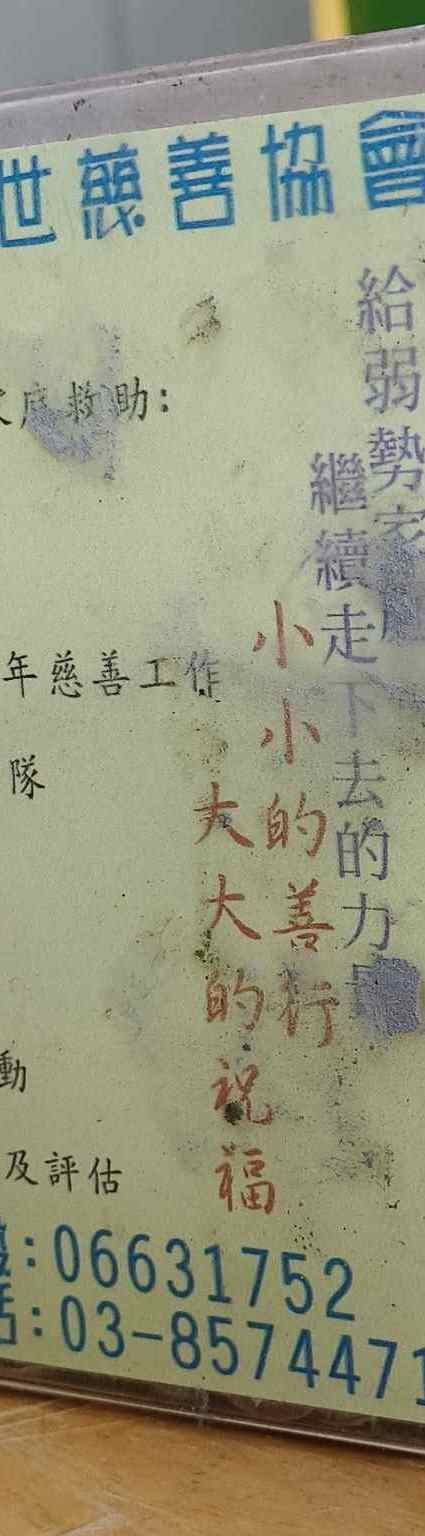 世慈善協會
給弱勢家庭
繼續走下去的力量
小小的善行
大大的祝福
庭救助:
年慈善工作
隊
動
及評估
:06631752
話:03-8574471